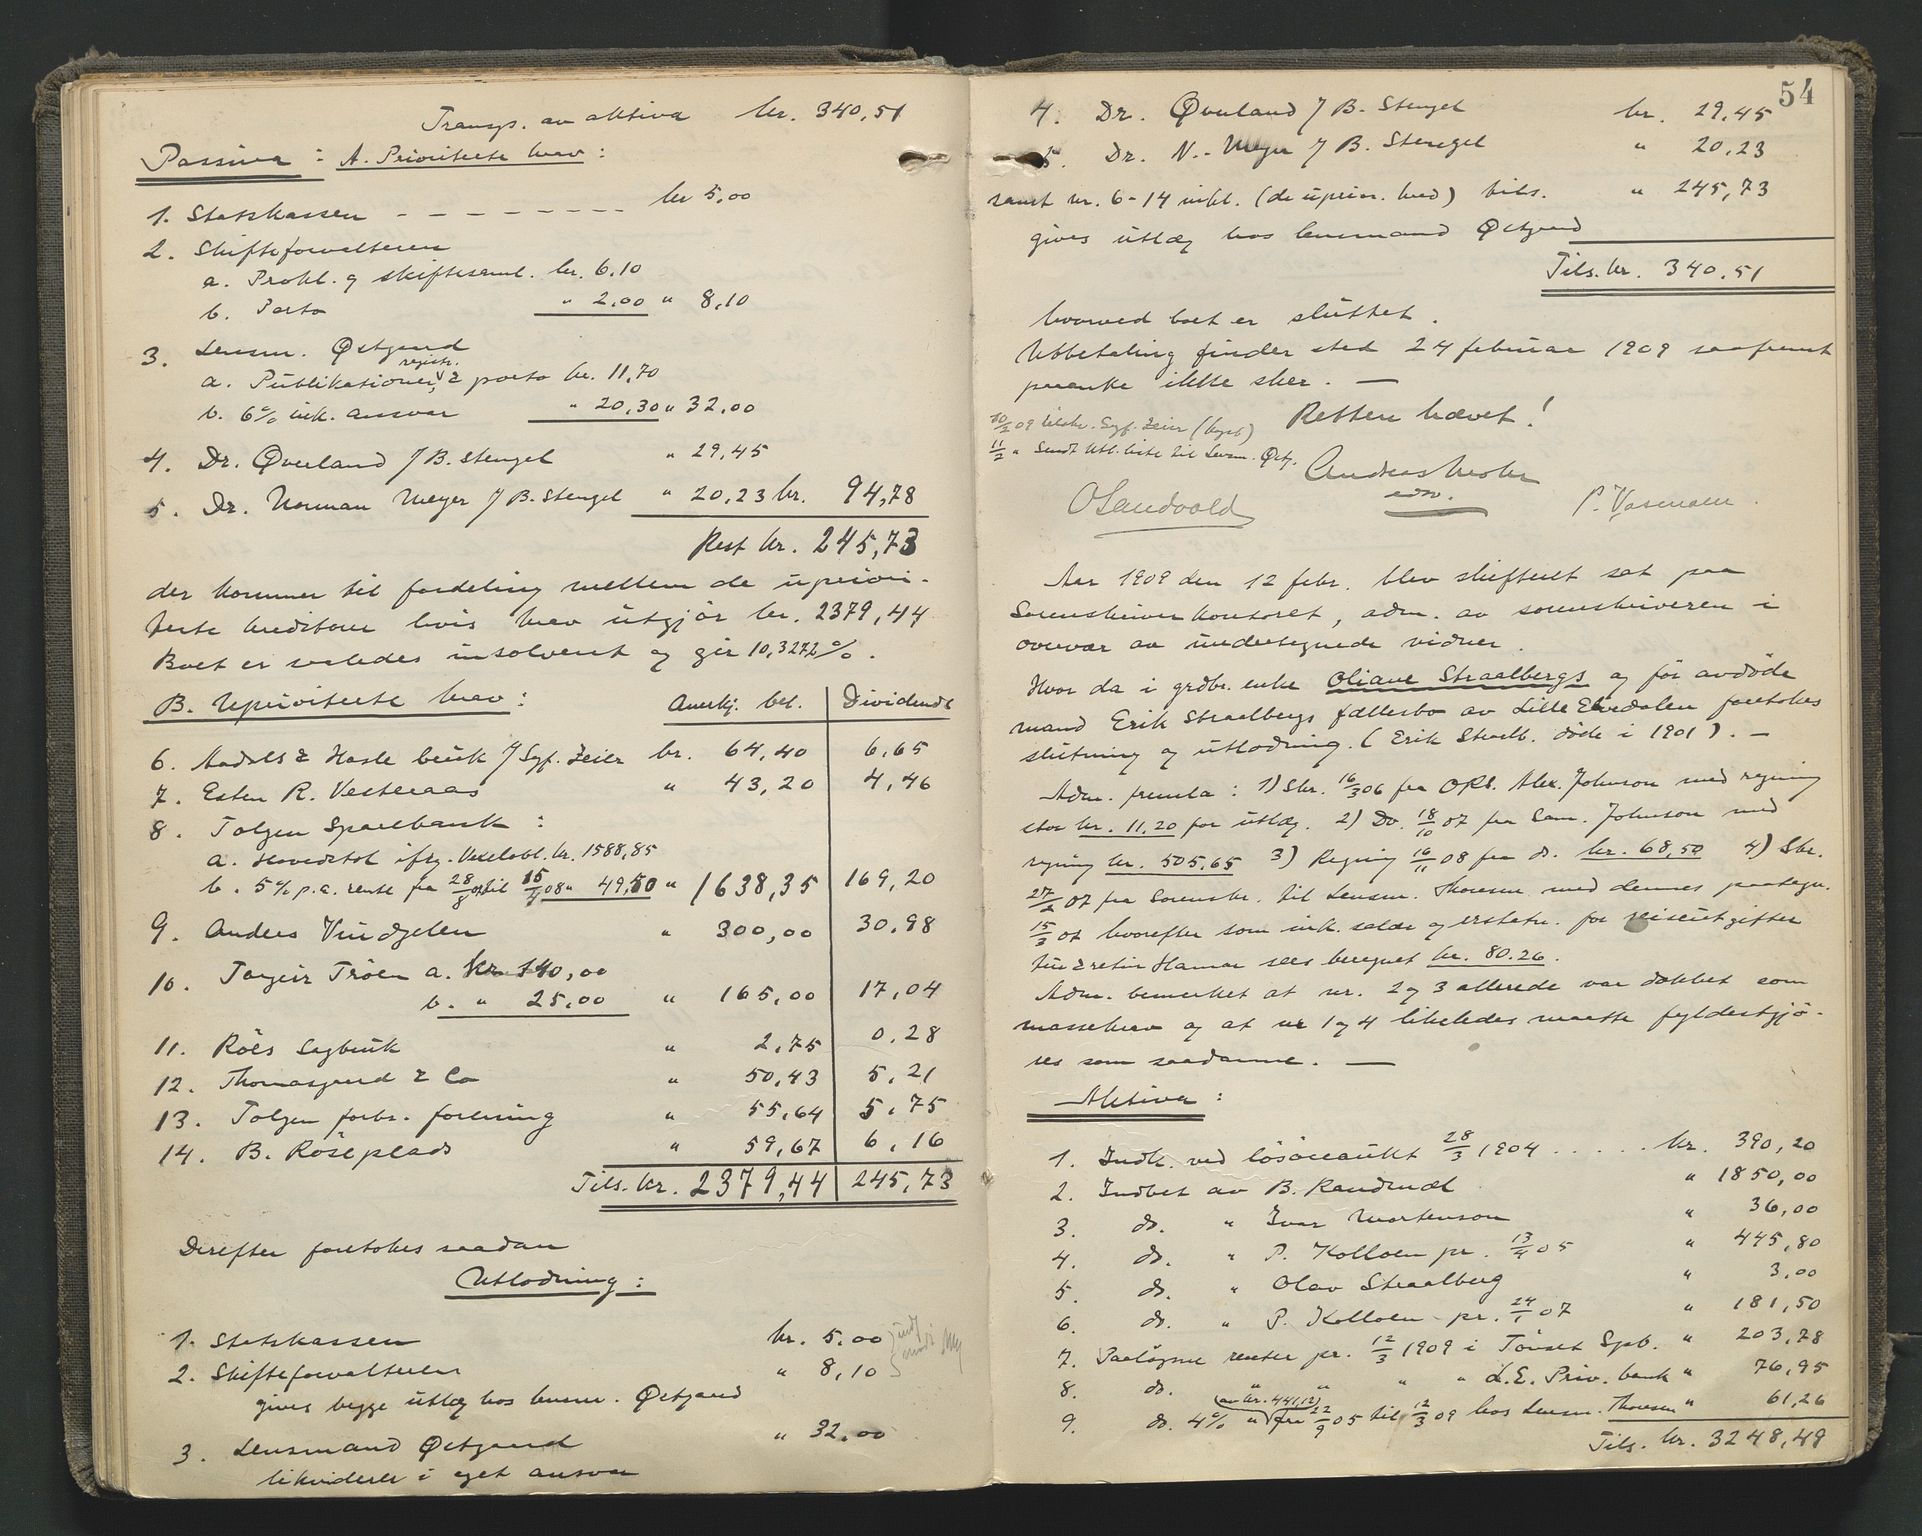 Transp. av aktiva kr. 340,51
Passiva: A. Prioriterte krav:
1. Statskassen - - - - - - - - - kr 5,00
2. Skifteforvalteren
a. Prokl. og skiftesaml. kr. 6.10
b. Porto " 2,00 " 8,10
3. Lensm. Østgaard
a. Publikationer, registr. & porto kr. 11,70
b. 6% ink. ansvar " 20,30 " 32,00
4. Dr. Øverland f B. Stengel " 29,45
5. Dr. Norman Meyer f B. Stengel " 20,23 kr. 94,78
Rest kr. 245,73
der kommer til fordeling mellem de upriori-
terte kreditorer hvis krav utgjör kr. 2379,44
Boet er saaledes insolvent og gir 10,3272%.
B. Uprioriterte krav: Anerkj. bel. Dividende
6. Aadals & Hasle bruk f Sgf. Zeier kr. 64,40 6,65
7. Esten R. Vesteraas " 43,20 4,46
8. Tolgen Sparebank:
a. Hovedstol iflg. Vexelobl. kr. 1588,85
b. 5% p.a. rente fra 28/8 07 til 15/4 08 " 49,50 " 1638,35 169,20
9. Anders Vingelen " 300,00 30,98
10. Torgeir Tröen a. kr 140,00
b. " 25,00 " 165,00 17,04
11. Röes Sagbruk " 2,75 0,28
12. Thomasgaard & Co " 50,43 5,21
13. Tolgen forbr. forening " 55,64 5,75
14. B. Röseplads " 59,67 6,16
Tils. kr. 2379,44 245,73
Derefter foretokes saadan
Utlodning:
1. Statskassen kr. 5,00
2. Skifteforvalteren " 8,10
gives begge utlæg hos lensm. Østgaard
3. Lensmand Østgaard " 32,00
likviderer i eget ansvar
54
4. Dr. Øverland f B. Stengel kr. 29,45
5. Dr. N. Meyer f B. Stengel " 20,23
samt nr. 6-14 inkl. (de uprior. krav) tils. " 245,73
gives utlæg hos lensmand Østgaard
Tils. kr. 340,51
hvorved boet er sluttet.
Utbetaling finder sted 24 februar 1909 saafremt
paaanke ikke sker. —
10/2 09 tilskr. Sgf. Zeier
Retten hævet!
11/2 " Sendt Utl. liste til Lensm. Østg.
Andreas Mohr
edsv.
O Sandvold P. Vasenden.
Aar 1909 den 12 febr. blev skifteret sat paa
Sorenskriverkontoret, adm. av sorenskriveren i
overvær av undertegnede vidner.
Hvor da i grdbr. enke Oliane Straalbergs og før avdöde
mand Erik Straalbergs fællesbo av Lille Elvedalen foretokes
slutning og utlodning. (Erik Straalb. döde i 1901). —
Adm. fremla: 1) Skr. 16/3 06 fra ORS. Alex. Johnson med regning
stor kr. 11.20 for utlæg. 2) Do. 18/10 07 fra Sam. Johnson med
regning kr. 505,65 3) Regning 16/11 08 fra do. kr. 68,50 4) Skr.
27/2 07 fra Sorenskr. til Lensm. Thoresen med dennes paategn.
15/3 07 hvorefter som ink. salær og erstatn. for reiseutgifter
tur & retur Hamar sees beregnet kr. 80.26.
Adm. bemerket at nr. 2 og 3 allerede var dækket som
massekrav og at nr 1 og 4 likeledes maatte fyldestgjö-
res som saadanne. —
Aktiva:
1. Indk. ved lösöreauktion 28/3 1904 ..... kr. 390,20
2. Indbet av B. Randmæl " 1850,00
3. do. " Ivar Mortenson " 36,00
4. do. " P. Kolloen pr. 13/4 05 " 445,80
5. do. " Olav Straalberg " 3,00
6. do. " P. Kolloen pr. 24/1 07 " 181,50
7. Paalöpne renter pr. 12/3 1909 i Tönset Spb. " 203,78
8. do. " " " " L.E. Priv. bank " 76,95
9. do. 4% " (av kr. 441,12) fra 22/9 05 til 12/3 09 hos Lensm. Thoresen " 61,26
Tils. kr. 3248,49